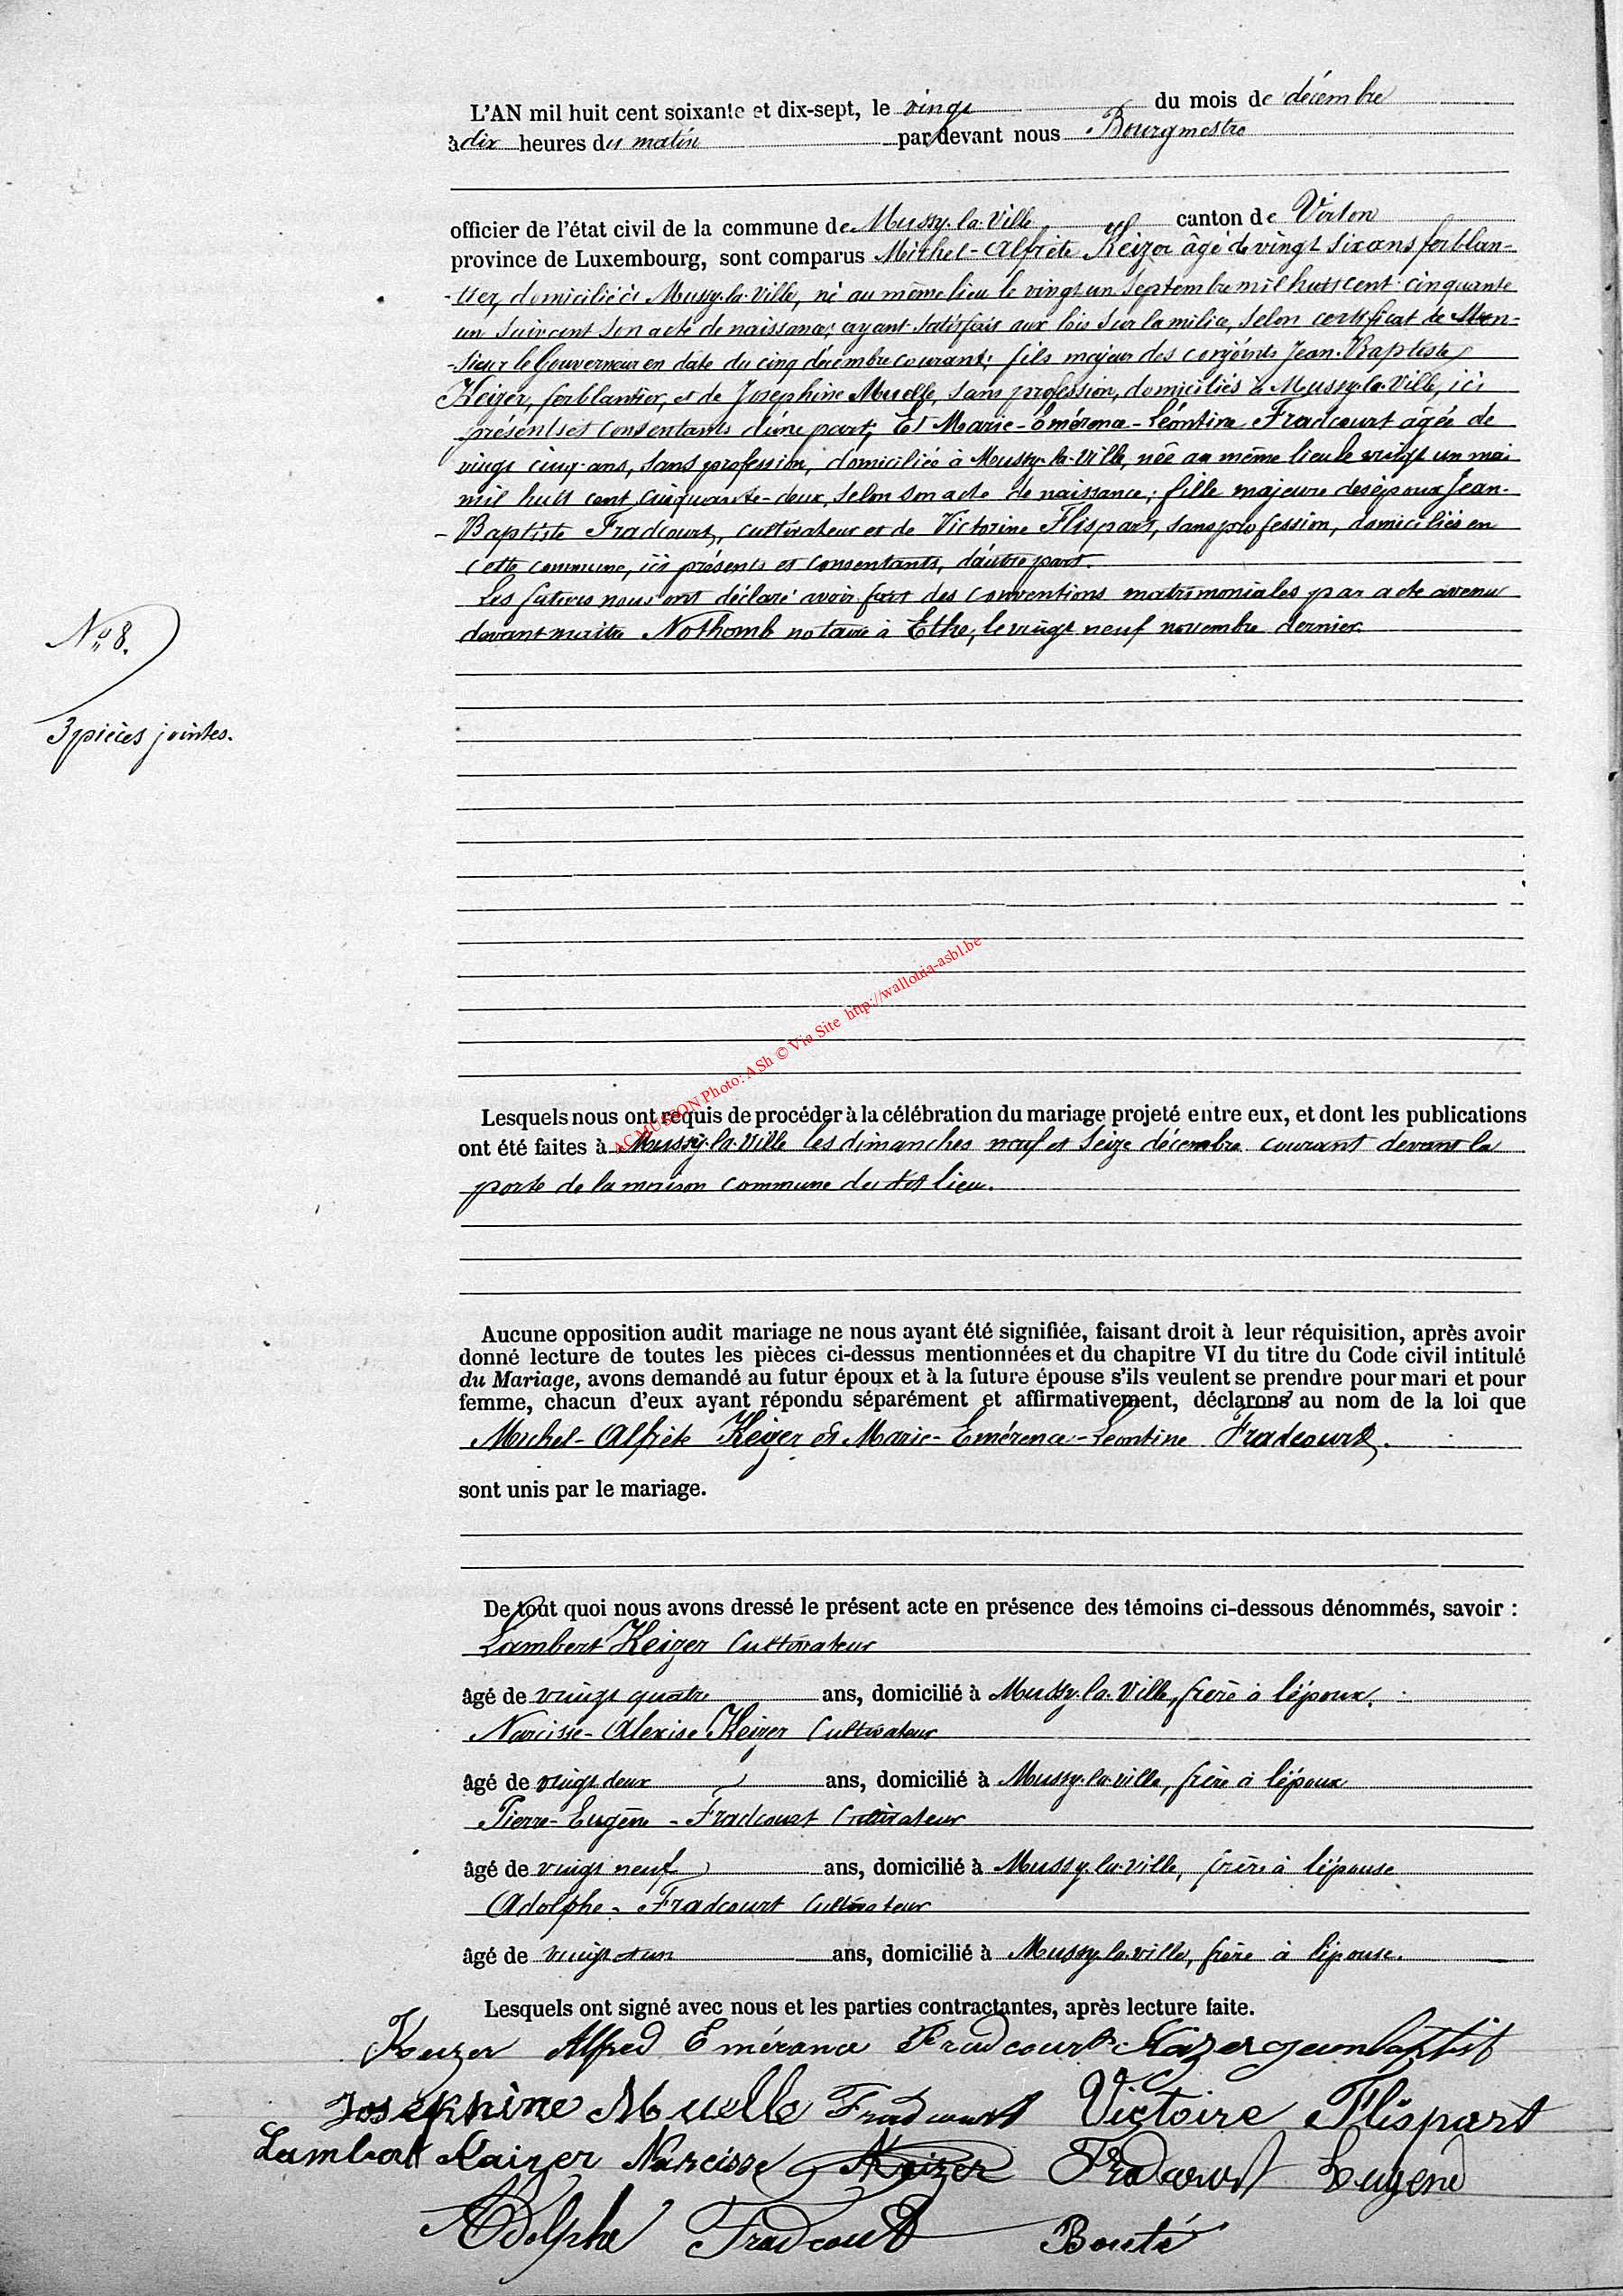 L'AN mil huit cent soixante et dix-sept, le vingt du mois de décembre
à dix heures du matin par devant nous Bourgmestre
officier de l'état civil de la commune de Mussy-la-Ville canton de Virton
province de Luxembourg, sont comparus Michel-Alfrète Keizer âgé de vingt six ans ferblan-
-tier, domicilié à Mussy-la-Ville, né au même lieu le vingt un Septembre mil huit cent cinquante
un suivant son acte de naissance; ayant satisfait aux lois sur la milice, selon certificat de Mon-
-sieur le Gouverneur en date du cinq décembre courant; fils majeur des conjoints Jean-Baptiste
Keizer, ferblantier, et de Josephine Muelle, sans profession, domiciliés à Mussy-la-Ville, ici
présents et consentants d'une part; Et Marie-Emérence-Léontine Fradcourt âgée de
vingt cinq ans, sans profession, domiciliée à Mussy-la-Ville, née au même lieu le vingt un mai
mil huit cent cinquante-deux, selon son acte de naissance; fille majeure des époux Jean-
-Baptiste Fradcourt, cultivateur et de Victorine Flispart, sans profession, domiciliés en
cette commune, ici présents et consentants, d'autre part.
Les futurs nous ont déclaré avoir fait des conventions matrimoniales par acte avenu
devant maître Nothomb notaire à Ethe, le vingt neuf novembre dernier.
N° 8.
3 pièces jointes.
AC MUSSON Photo: ASh © Via Site http://wallonia-asbl.be
Lesquels nous ont requis de procéder à la célébration du mariage projeté entre eux, et dont les publications
ont été faites à Mussy-la-Ville les dimanches neuf et seize décembre courant devant la
porte de la maison commune du dit lieu.
Aucune opposition audit mariage ne nous ayant été signifiée, faisant droit à leur réquisition, après avoir
donné lecture de toutes les pièces ci-dessus mentionnées et du chapitre VI du titre du Code civil intitulé
du Mariage, avons demandé au futur époux et à la future épouse s'ils veulent se prendre pour mari et pour
femme, chacun d'eux ayant répondu séparément et affirmativement, déclarons au nom de la loi que
Michel-Alfrète Keizer et Marie-Emérence-Leontine Fradcourt.
sont unis par le mariage.
De tout quoi nous avons dressé le présent acte en présence des témoins ci-dessous dénommés, savoir :
Lambert Keizer Cultivateur
âgé de vingt quatre ans, domicilié à Mussy-la-Ville, frère à l'époux.
Narcisse-Alexise Keizer Cultivateur
âgé de vingt deux ans, domicilié à Mussy-la-ville, frère à l'époux
Pierre-Eugène-Fradcourt Cultivateur
âgé de vingt neuf ans, domicilié à Mussy-la-ville, frère à l'épouse
Adolphe-Fradcourt Cultivateur
âgé de vingt et un ans, domicilié à Mussy-la-ville, frère à l'épouse.
Lesquels ont signé avec nous et les parties contractantes, après lecture faite.
Keizer Alfred Emérance Fradcourt Kaizer jeanbaptist
Josephine Muelle Fradcourt Victoire Flispart
Lambert Kaizer Narcisse Keizer Fradcourt Eugene
Adolphe Fradcourt Bouté